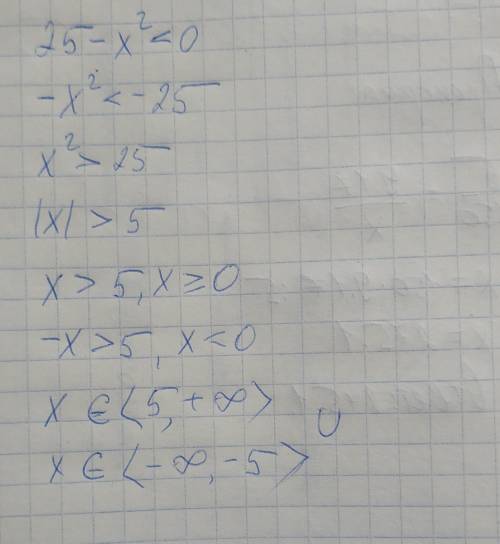 25-x²<0
-x²<-25
x²>25
|x|>5
x>5, x≥0
-x>5, x<0
x∈⟨5,+∞⟩
∪
x∈⟨-∞,-5⟩